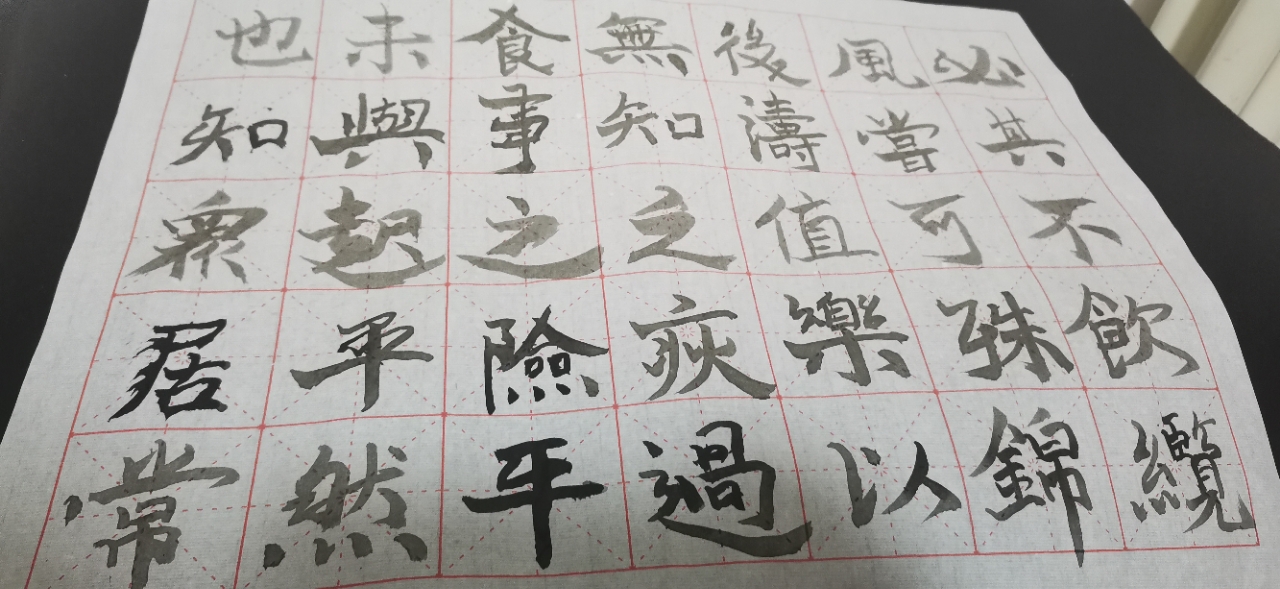 必其不飲纜
風嘗可殊錦
後濤值樂以
無知之疾過
食事之險平
未與起平然
也知眾居常